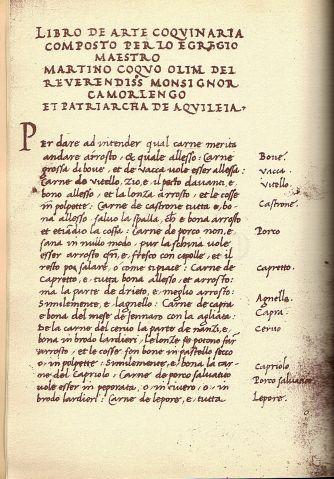 LIBRO DE ARTE COQVINARIA
COMPOSTO PER LO EGREGIO
MAESTRO
MARTINO COQVO OLIM DEL
REVERENDISS MONSIGNOR
CAMORLENGO
ET PATRIARCHA DE AQVILEIA.
Per dare ad intender qual carne merita
andare arrosto, & quale allesso: Carne Bove.
grossa di bove, et de vacca vole esser allessa: Vacca.
Carne de vitello, zio, e, il petto davanti, e, Vitello.
bono allesso, et la lonza arrosto, et le cosse
in polpette: Carne de castrone tutta e, bo Castrone.
na allesso, salvo la spalla, ch e bona arrosto
et etiādio la cossa: Carne do porco non, e, Porco
sana in nullo modo, pur la schina vole
esser arrosto qñ, e, fresco con cepolle, et il
resto poi salare, o como ti piace: Carne de
Capretto, e, tutta bona allesso, et arrosto: Capretto.
ma la parte de drieto, e, meglio arrosto:
Similemente, e, lagnello: Carne de capra Agnello.
e bona del mese de Jennaro con la agliata: Capra.
De la carne del cervo la parte de nanzi, e, Cervo
bona in brodo lardieri, Le lonze se potono far
arrosto, et le cosse son bone in pastello secco
o, in polpette: Similemente, e, bona la car- Capriolo
ne del Capriolo, Carne de porco salvatico Porco salvatico
vole esser in peperata, o in civero, o, in
brodo lardieri: Carne de lepore, e, tutta Lepore.